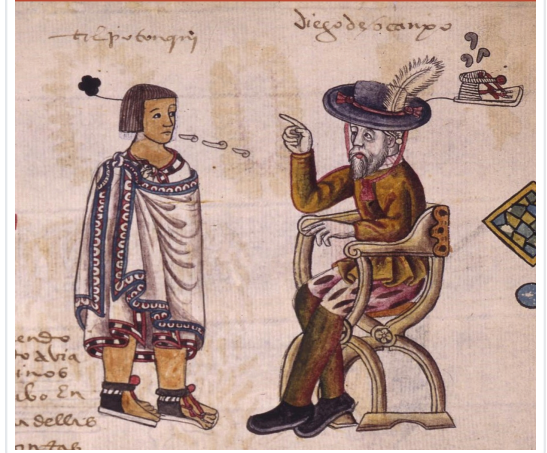 tlEpotonqui
diego de ocanpo
endo
o avia
inos
ibo En
a dellas